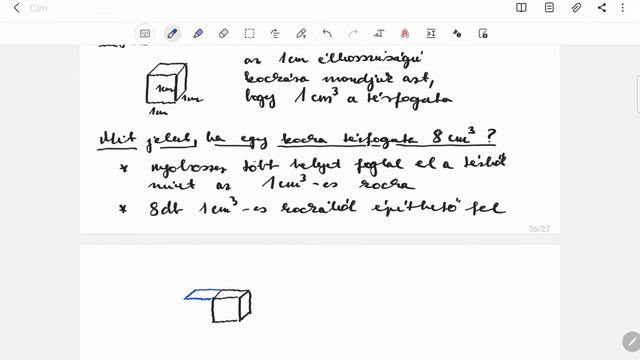 Cím
az 1cm élhosszúságú
kockára mondjuk azt,
hogy 1 cm³ a térfogata
1cm
1cm
1cm
Mit jelent, ha egy kocka térfogata 8 cm³ ?
* nyolcszor több helyet foglal el a térből
mint az 1cm³-es kocka
* 8db 1cm³-es kockából építhető fel
26/27